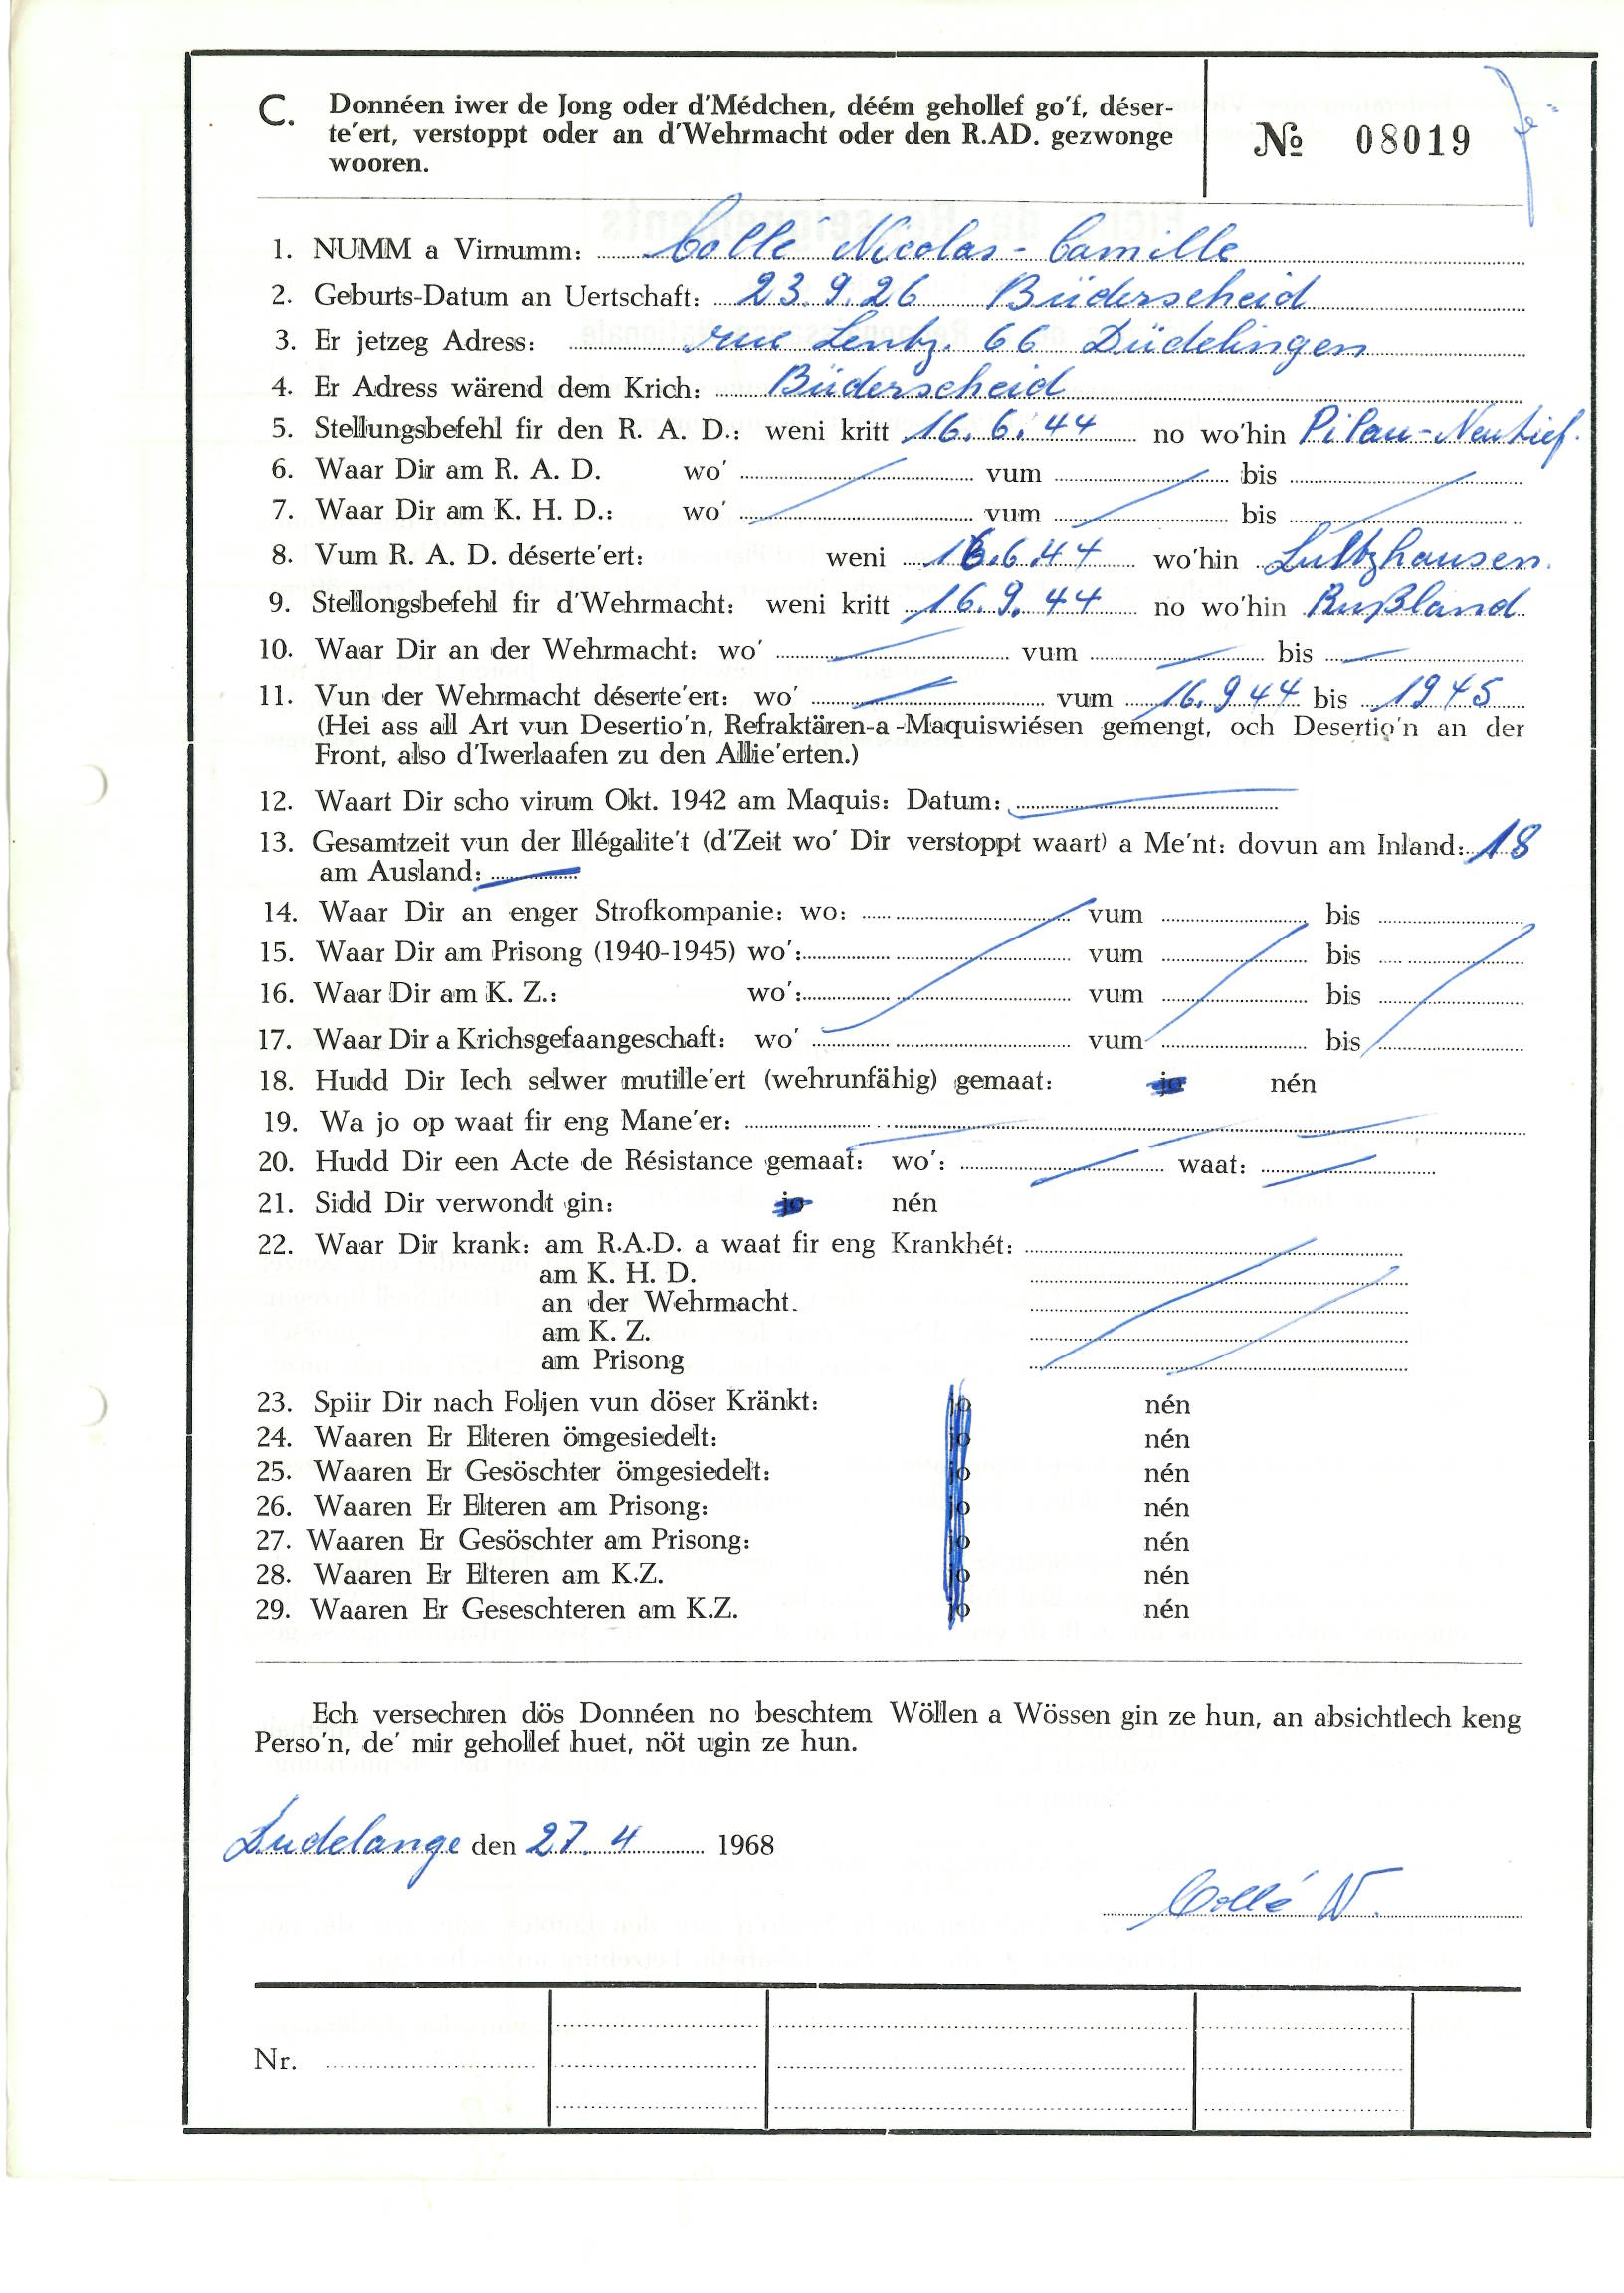 C. Donnéen iwer de Jong oder d'Médchen, déém gehollef go'f, déser-
te'ert, verstoppt oder an d'Wehrmacht oder den R.AD. gezwonge
wooren.
№ 08019
1. NUMM a Virnumm: Collé Nicolas-Camille
2. Geburts-Datum an Uertschaft: 23.9.26 Büderscheid
3. Er jetzeg Adress: rue Lentz. 66 Düdelingen
4. Er Adress wärend dem Krich: Büderscheid
5. Stellungsbefehl fir den R. A. D.: weni kritt 16.6.44 no wo'hin Pilau-Neutief.
6. Waar Dir am R. A. D. wo' vum bis
7. Waar Dir am K. H. D.: wo' vum bis
8. Vum R. A. D. déserte'ert: weni 16.6.44 wo'hin Lultzhausen.
9. Stellongsbefehl fir d'Wehrmacht: weni kritt 16.9.44 no wo'hin Rußland
10. Waar Dir an der Wehrmacht: wo' vum bis
11. Vun der Wehrmacht déserte'ert: wo' vum 16.9 44 bis 1945
(Hei ass all Art vun Desertio'n, Refraktären-a-Maquiswiésen gemengt, och Desertio'n an der
Front, also d'Iwerlaafen zu den Allie'erten.)
12. Waart Dir scho virum Okt. 1942 am Maquis: Datum:
13. Gesamtzeit vun der Illégalite't (d'Zeit wo' Dir verstoppt waart) a Me'nt: dovun am Inland: 18
am Ausland:
14. Waar Dir an enger Strofkompanie: wo: vum bis
15. Waar Dir am Prisong (1940-1945) wo': vum bis
16. Waar Dir am K. Z.: wo': vum bis
17. Waar Dir a Krichsgefaangeschaft: wo' vum bis
18. Hudd Dir Iech selwer mutille'ert (wehrunfähig) gemaat: jo nén
19. Wa jo op waat fir eng Mane'er:
20. Hudd Dir een Acte de Résistance gemaat: wo': waat:
21. Sidd Dir verwondt gin: jo nén
22. Waar Dir krank: am R.A.D. a waat fir eng Krankhét:
am K. H. D.
an der Wehrmacht.
am K. Z.
am Prisong
23. Spiir Dir nach Foljen vun döser Kränkt: jo nén
24. Waaren Er Elteren ömgesiedelt: jo nén
25. Waaren Er Gesöschter ömgesiedelt: jo nén
26. Waaren Er Elteren am Prisong: jo nén
27. Waaren Er Gesöschter am Prisong: jo nén
28. Waaren Er Elteren am K.Z. jo nén
29. Waaren Er Geseschteren am K.Z. jo nén
Ech versechren dös Donnéen no beschtem Wöllen a Wössen gin ze hun, an absichtlech keng
Perso'n, de' mir gehollef huet, nöt ugin ze hun.
Dudelange den 27.4 1968
Collé N.
Nr.